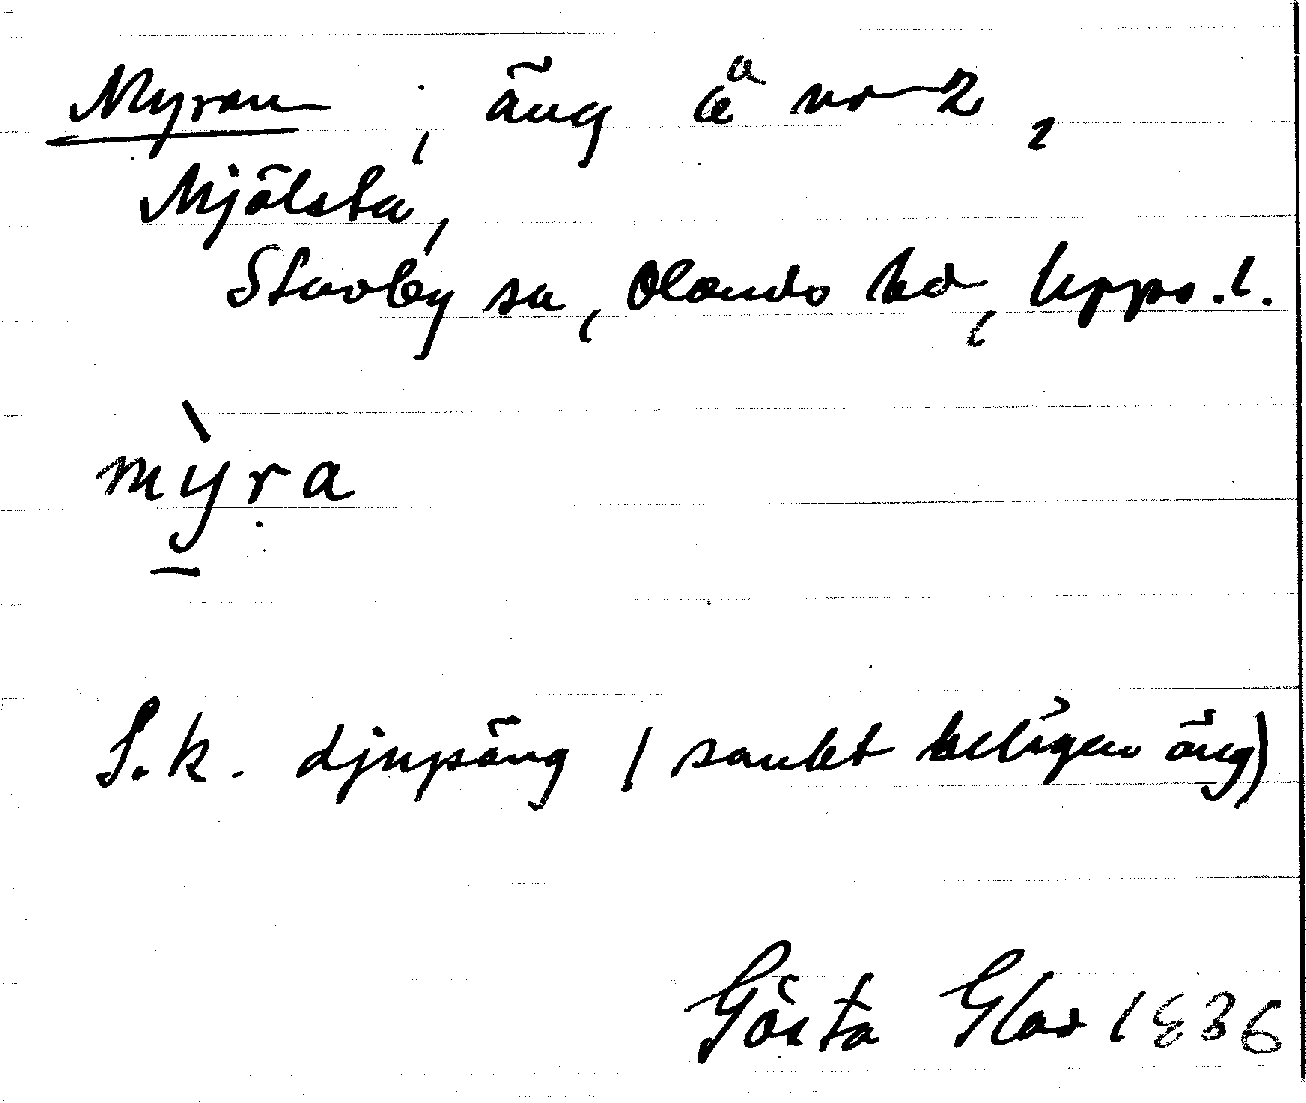 Myran, äng å nr 2,
Mjölsta,
Stavby sn, Olands hd, Upps. l.
mỳra
S.k. djupäng (sankt belägen äng)
Gösta Glad 1936